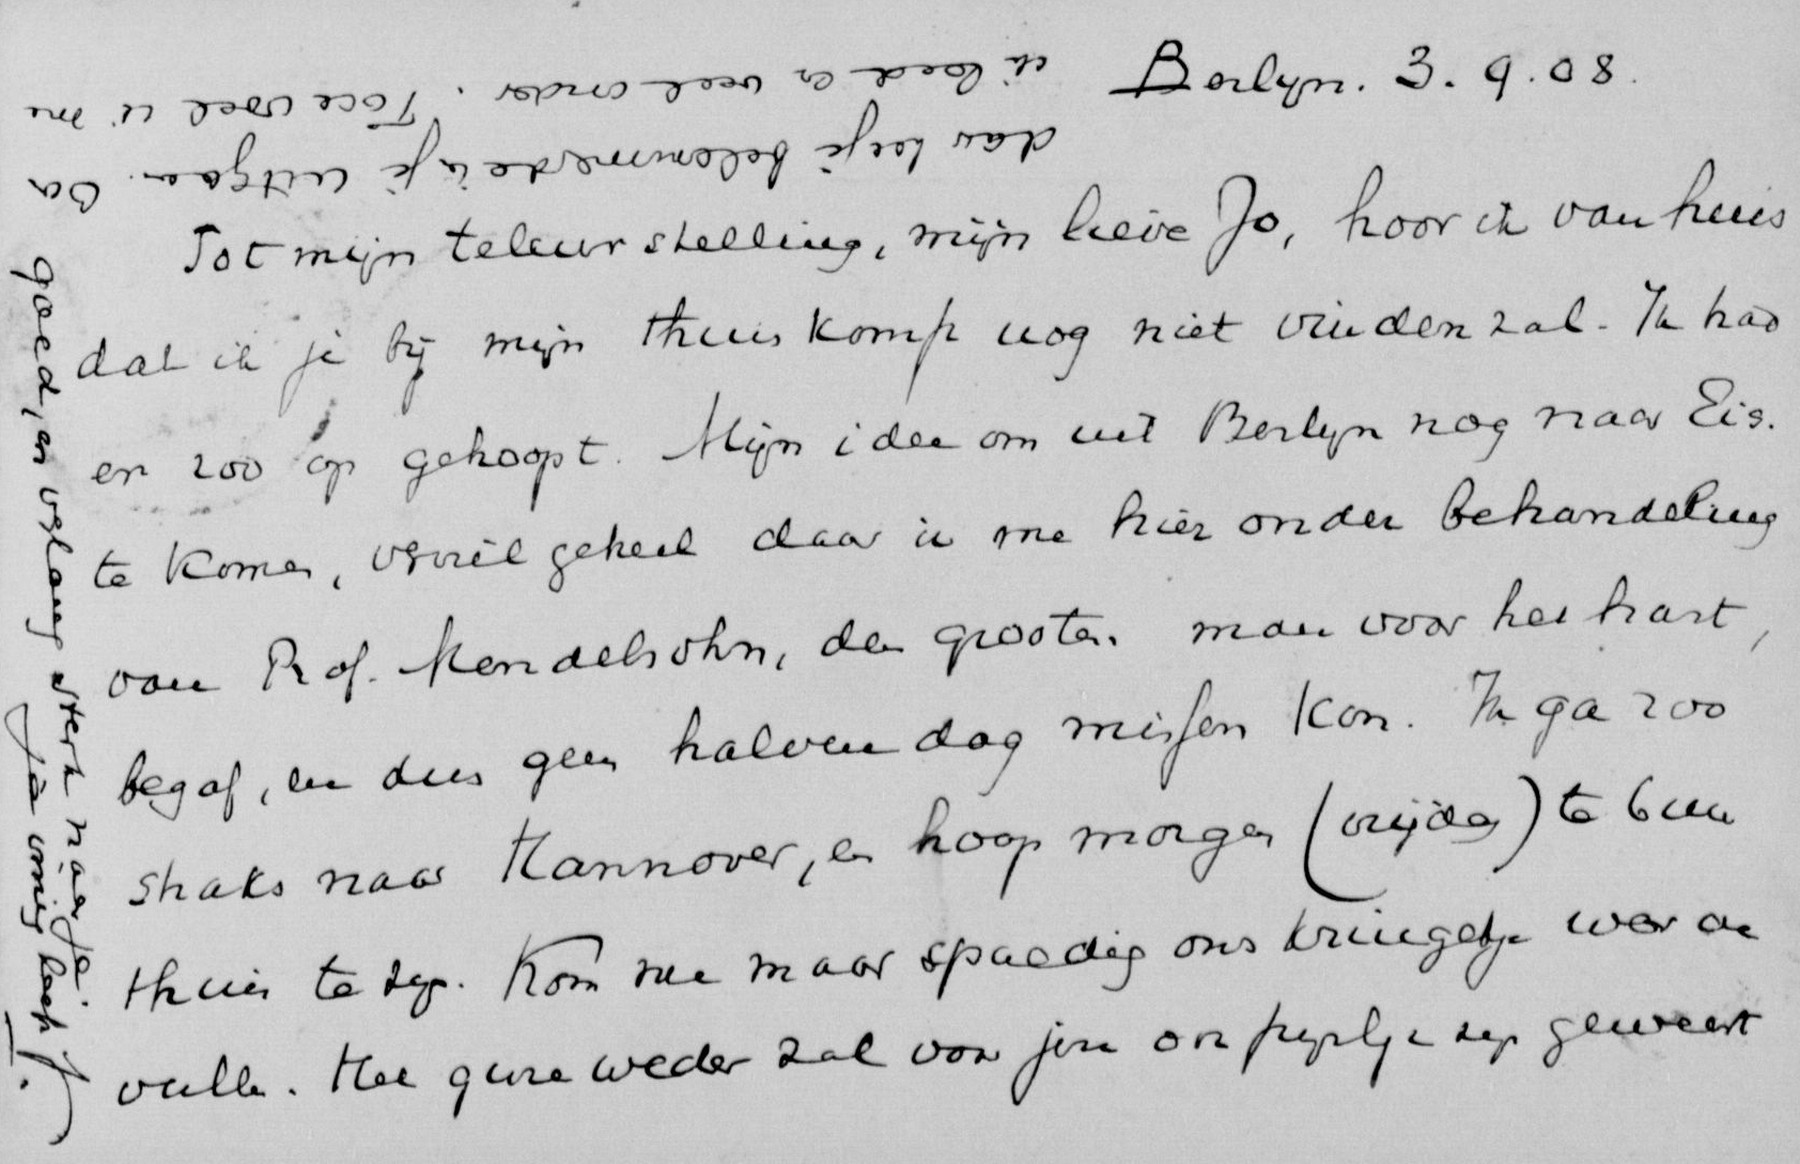 Berlyn. 3.9.08.
Tot mijn teleurstelling, mijn lieve Jo, hoor ik van huis
dat ik je bij mijn thuiskomst nog niet vinden zal. Ik had
er zoo op gehoopt. Mijn idee om uit Berlyn nog naar Eis.
te komen, verviel geheel daar ik me hier onder behandeling
van Prof. Mendelsohn, den grooten man voor het hart,
begaf, en dus geen halven dag missen kon. Ik ga zoo
straks naar Hannover, en hoop morgen (vrijdag) te 6 uur
thuis te zyn. Kom nu maar spoedig ons kringetje weer aan
vullen. Het gure weder zal voor jou ook zyn geweest
daar het je belemmerde in je uitgaan.
ik leed er veel onder. Toce voel ik me
goed, en verlang sterk naar je.
Je innig liefh